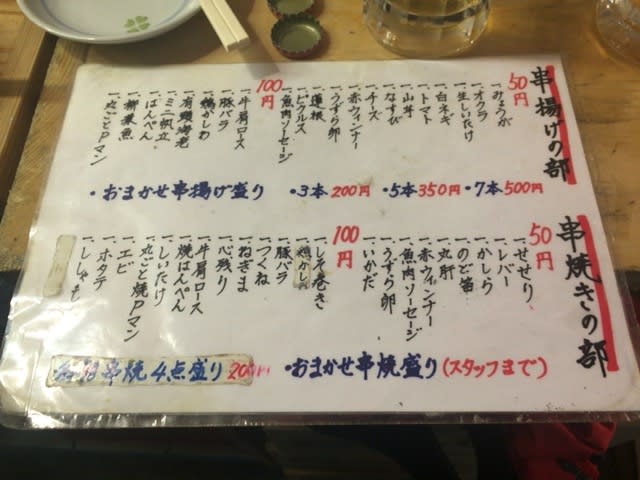 串揚げの部
50円
一、みょうが
一、オクラ
一、生しいたけ
一、白ネギ
一、トマト
一、山芋
一、なすび
一、チーズ
一、赤ウィンナー
一、うずら卵
一、蓮根
一、ピクルス
一、魚肉ソーセージ
100円
一、牛肩ロース
一、豚バラ
一、鶏かしわ
一、有頭海老
一、ミニ帆立
一、はんぺん
一、柳葉魚
一、丸ごとPマン
・おまかせ串揚げ盛り
・3本200円
・5本350円
・7本500円
串焼きの部
50円
一、せせり
一、レバー
一、かしら
一、のど笛
一、丸肝
一、赤ウィンナー
一、魚肉ソーセージ
一、うずら卵
一、いかだ
100円
一、しそ巻き
一、鶏かしわ
一、豚バラ
一、つくね
一、ねぎま
一、心残り
一、牛肩ロース
一、焼はんぺん
一、しいたけ
一、丸ごと焼Pマン
一、エビ
一、ホタテ
一、ししゃも
・おまかせ串焼盛り(スタッフまで)
串焼4点盛り200円